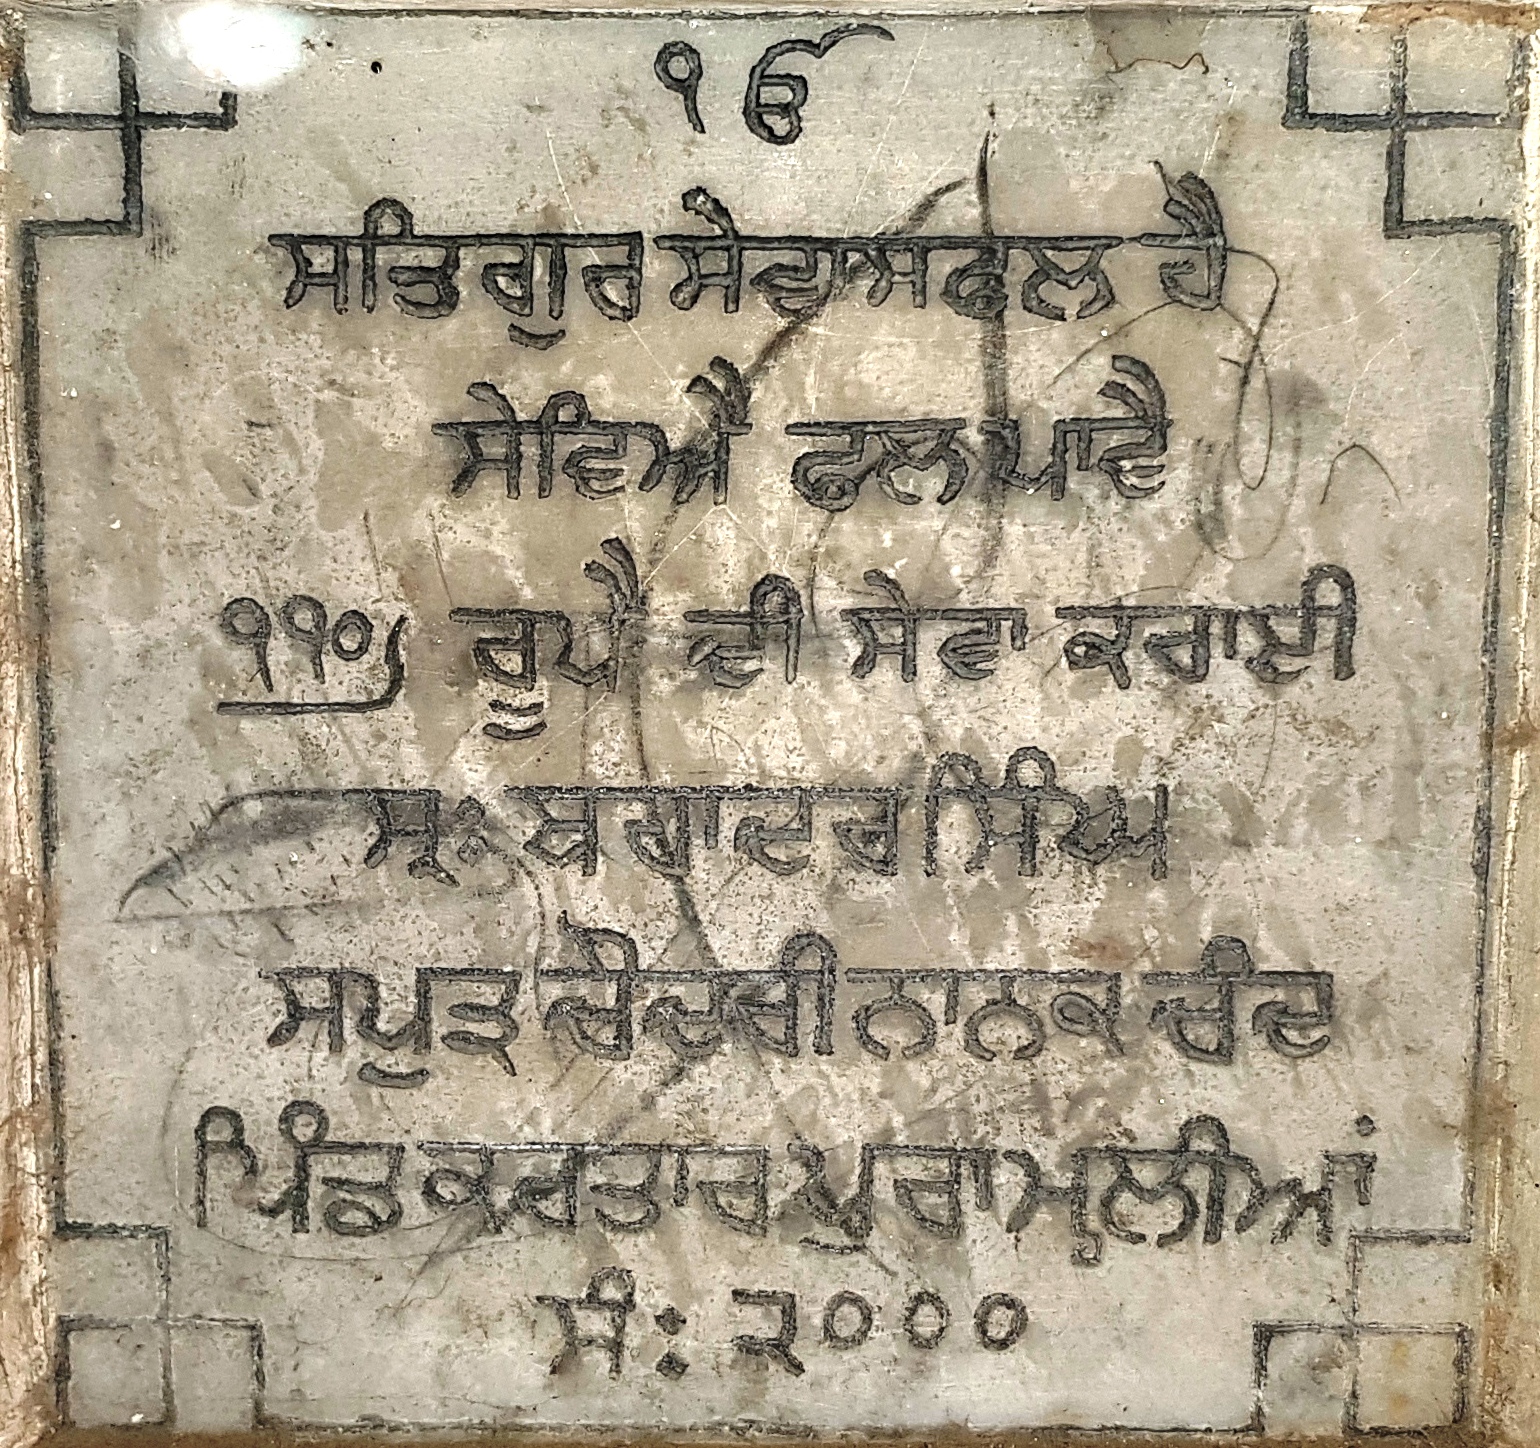 ੧ ੳ
ਸਤਿਗੁਰ ਸੇਵਾ ਸਫਲ ਹੈ
ਸੇਵਿਐ ਫਲ ਪਾਵੈ
੧੧੦) ਰੂਪੈ ਦੀ ਸੇਵਾ ਕਰਾਈ
ਸ੍ਰ: ਬਹਾਦਰ ਸਿੰਘ
ਸਪੁਤ੍ਰ ਚੌਧਰੀ ਨਾਨਕ ਚੰਦ
ਪਿੰਡ ਕਰਤਾਰ ਪੁਰਾ ਮ੍ਹਲੀਆਂ
ਸੰ: ੨੦੦੦